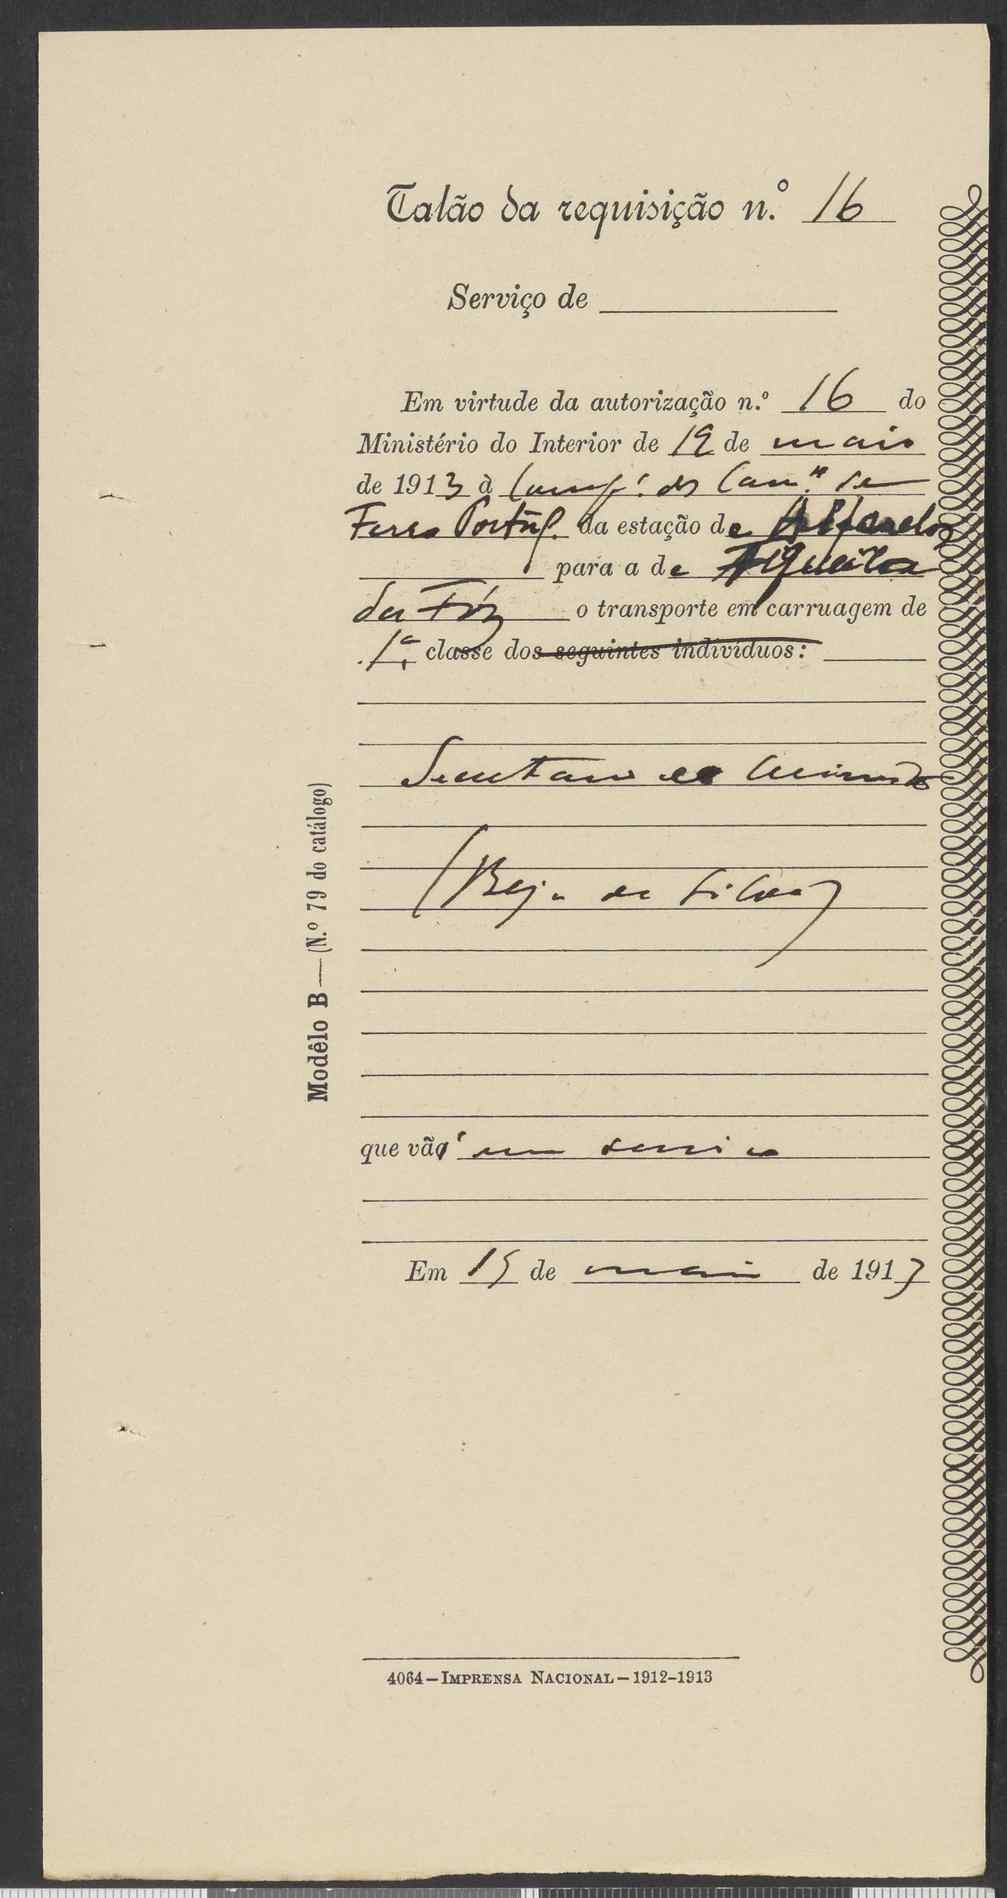 Talão da requisição n.º 16
Serviço de
Em virtude da autorização n.º 16 do
Ministério do Interior de 19 de maio
de 1913 à Comp.ª dos Cam.os de
Ferro Portug. da estação de Alfarelos
para a de Figueira
da Fóz o transporte em carruagem de
1.ª classe dos seguintes indivíduos:
Secretario do Ministro
(Beja da Silva)
que vão em serviço
Em 19 de maio de 1913
Modêlo B — (N.º 79 do catálogo)
4064 — Imprensa Nacional — 1912-1913